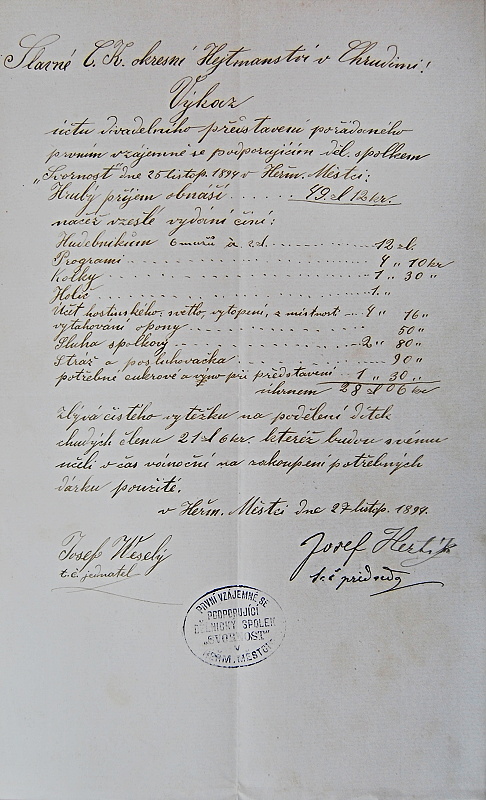 Slavné C. K. okresní Hejtmanství v Chrudimi!
Výkaz
účtu divadelního představení pořádaného
prvním vzájemně se podporujícím děl. spolkem
„Svornost" dne 25 listop. 1894 v Heřm. Městci:
Hrubý příjem obnáší . . . . . 49 zl 12 kr.
načež vzešlé vydání činí:
Hudebníkům 6 mužů à 2 zl. . . . . . 12 zl.
Programi . . . . . 4 „ 10 kr
Kolky . . . . . 1 „ 30 „
Holič . . . . . 1 „
Účet hostinského, světlo, vytopení, z místnost . . 4 „ 16 „
vytahování opony . . . . . 50 „
Sluha spolkový . . . . . 2 „ 80 „
Stráž a posluhovačka . . . . . 90 „
potřebné cukrové a při představení . . 1 „ 30 „
úhrnem 28 zl 06 kr
zbývá čistého výtěžku na podělení dítek
chudých členu 21 zl 6 kr. kteréž budou svému
účeli v čas vánoční na zakoupení potřebných
dárku použité.
v Heřm. Městci dne 27 listop. 1894.
Josef Weselý
t. č. jednatel
Josef
t. č. předseda
PRVNÍ VZÁJEMNĚ SE
PODPORUJÍCÍ
DĚLNICKÝ SPOLEK
„SVORNOST"
V
HEŘM. MĚSTCI